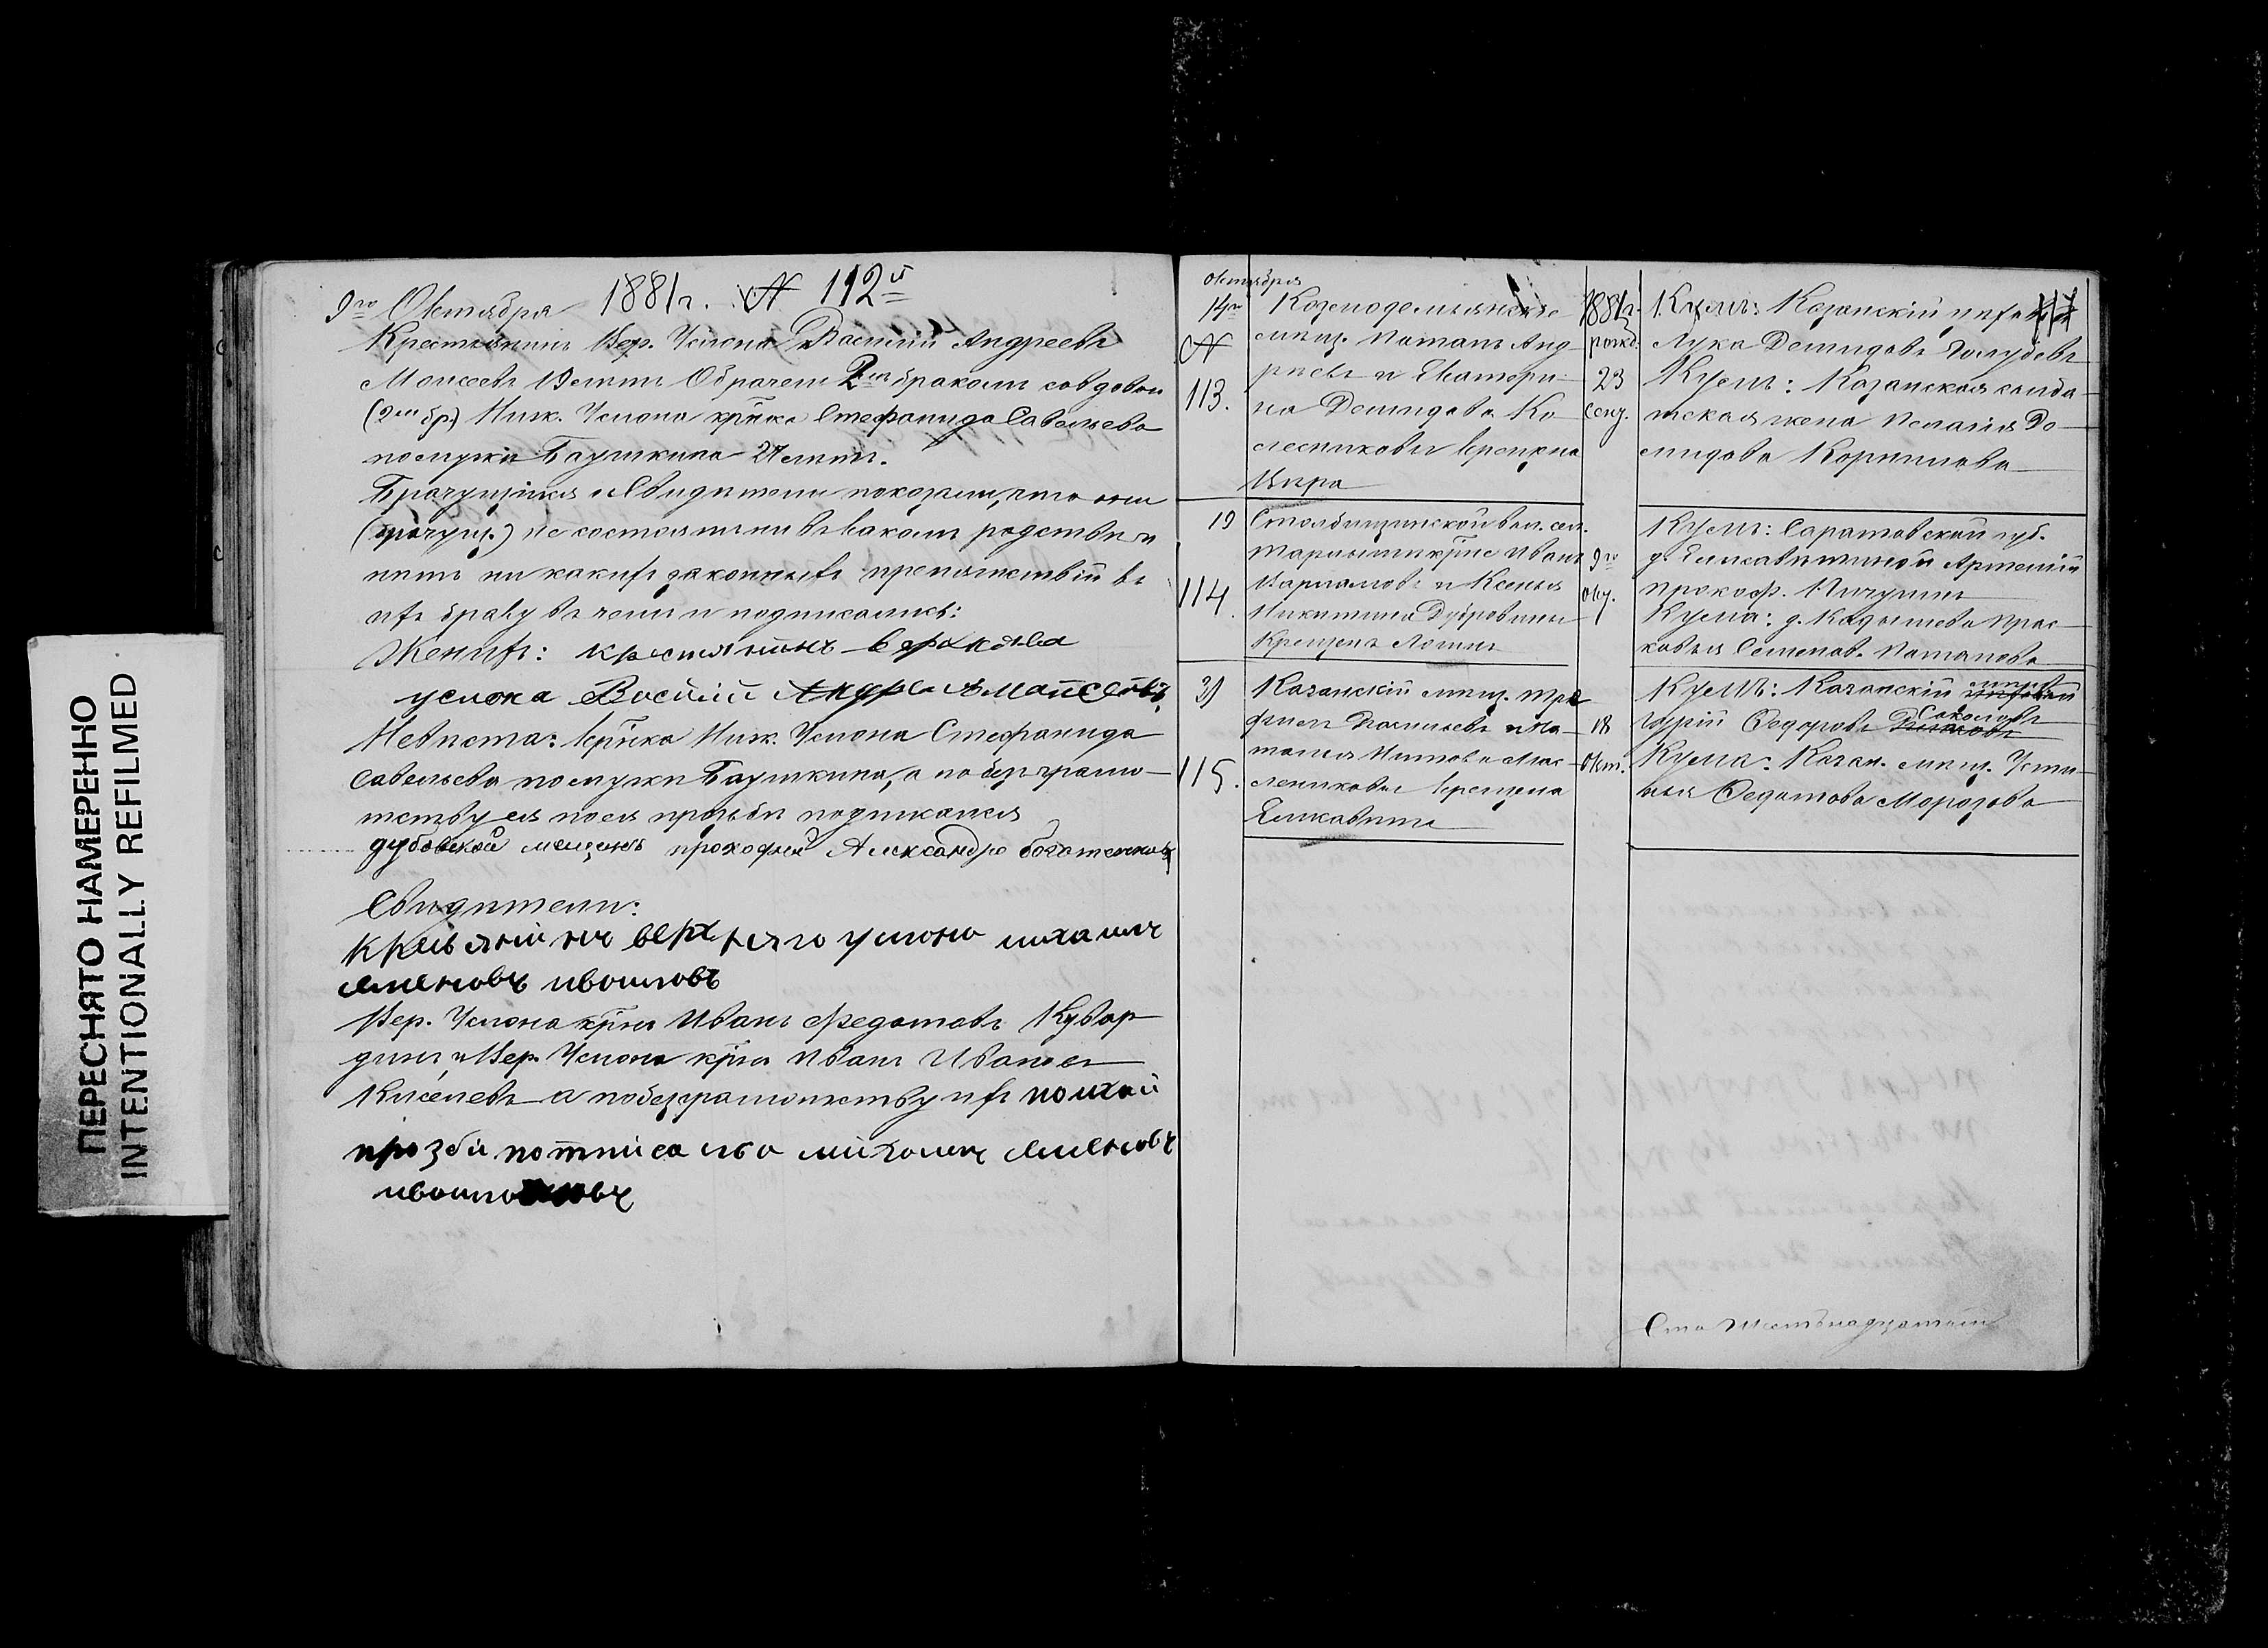 ПЕРЕСНЯТО НАМЕРЕННО
INTENTIONALLY REFILMED
9го Октября 1881г. № 112й
Крестьянинъ Вер. Услона Василій Андреевъ
Моисеевъ 19 летъ Обрачен 2мъ бракомъ со вдовою
(2мъ бр.) Ниж. Услона кр͞нка Стефанида Савельева
по мужѣ Баушкина 27 летъ.
Брачущіися и Свидѣтели показали, что они
(брачущ.) не состоятъ ни въ какомъ родствѣ и
нѣтъ ни какихъ законныхъ препятствій къ
ихъ браку въ чемъ и подписались:
Женихъ: крестянинъ верхнева
услона Василий Андреевъ Мойсеивъ
Невѣста: кр͞нка Ниж. Услона Стефанида
Савельева по мужу Баушкина, а по безграмо-
тству ея поея просьбѣ подписался
дубовской мещенъ прокофей Александро
Свидѣтели:
верхняго услона михаилъ
семеновъ ивошловъ
Вер. Услона кр͞нъ Иванъ Федотовъ Кувар
динъ, и Вер. Услона кр͞нъ Иванъ Ивановъ
Киселевъ а по безграмотству ихъ поихой
прозби потписалса михаилъ семеновъ
октября
14го Козмодемьянскіе
№ мѣщ. Потапъ Анд-
113. реевъ и Екатери-
на Демидова Ко-
лесниковы крещена
Вѣра
1881г.
рожд.
23
Сент.
Кумъ: Казанскій
Лука Демидовъ Голубевъ
Кума: Казанская солда-
тская жена Пелагея Де-
мидова Корнилова
19 Столбищинской вол. сел.
114. кр͞не Иванъ
Варламовъ и Ксенья
Никитина Дубровины
Крещенъ Логинъ
9го
Окт.
Кумъ: Саратовской губ.
д. Елисаветиной Артемій
Прокоф. Пичугинъ
Кума: д. Кадышева Прас-
ковья Семенов. Потапова
21 Казанскій мѣщ. Тро-
фимъ Васильевъ и На-
115. талья Титова Мас-
лениковы крещена
Елисавета
18
Окт.
Кумъ: Казанскій
Гурій Федоровъ Соколовъ
Кума: Казан. мѣщ. Усти-
нья Федотова Морозова
Сто Шестьнадцатый